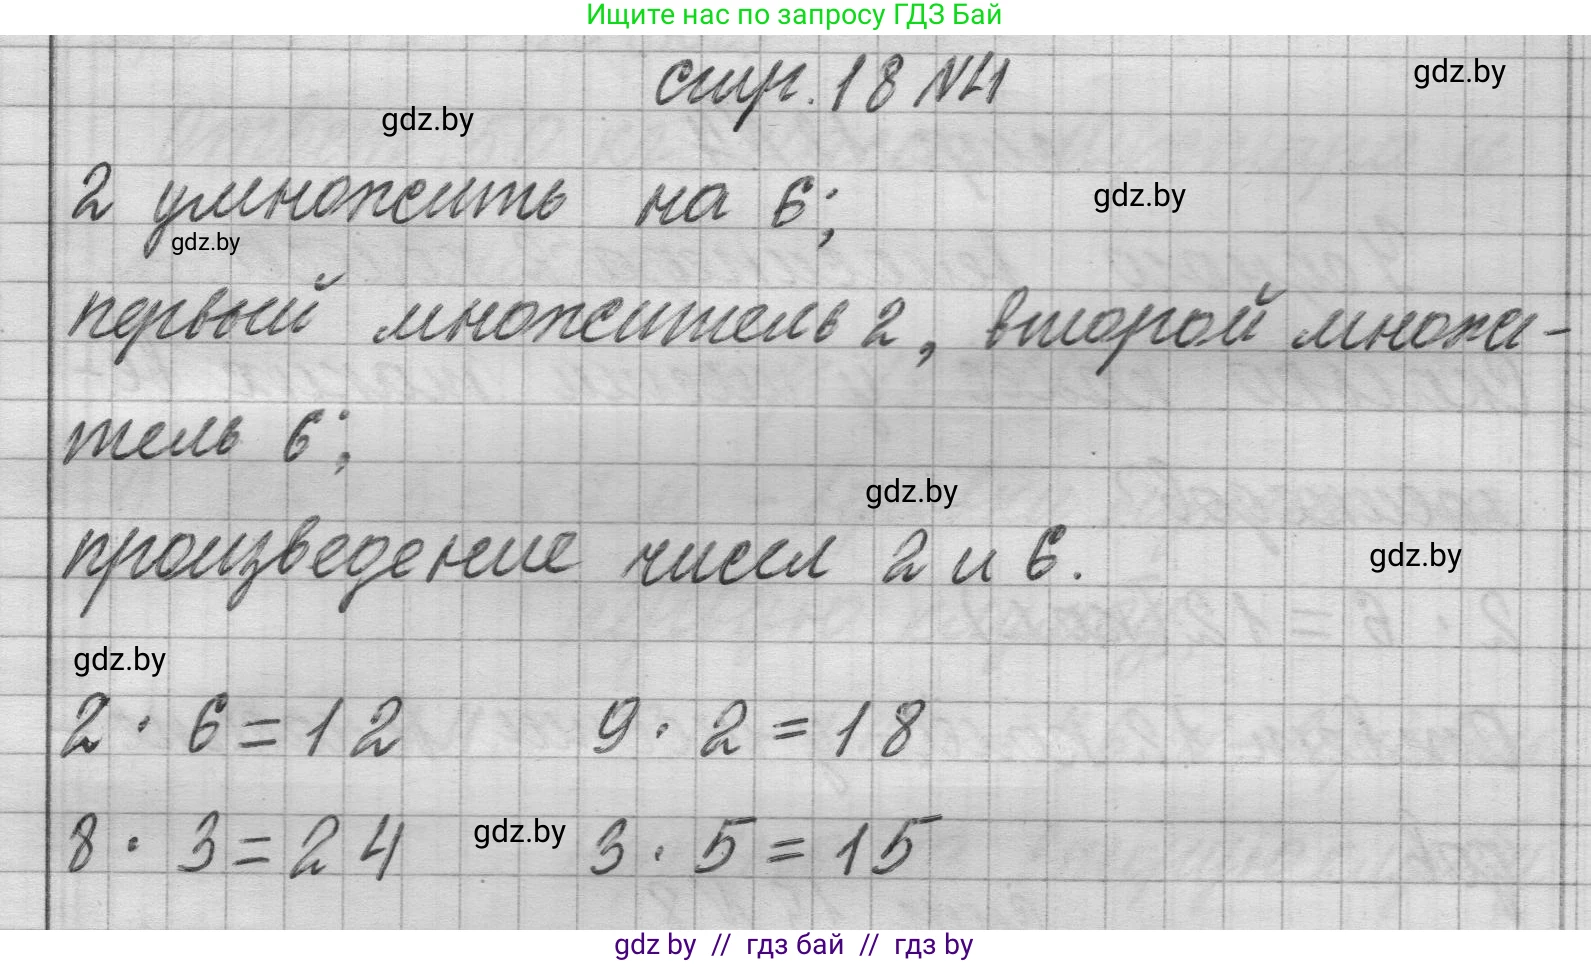 Ищите нас по запросу ГДЗ Бай
стр. 18 №1
gdz.by
gdz.by
2 умножить на 6;
gdz.by
gdz.by
первый множитель 2, второй множи-
тель 6;
gdz.by
произведение чисел 2 и 6.
gdz.by
gdz.by
2 · 6 = 12 9 · 2 = 18
8 · 3 = 24 gdz.by 3 · 5 = 15
gdz by // гдз бай // гдз by